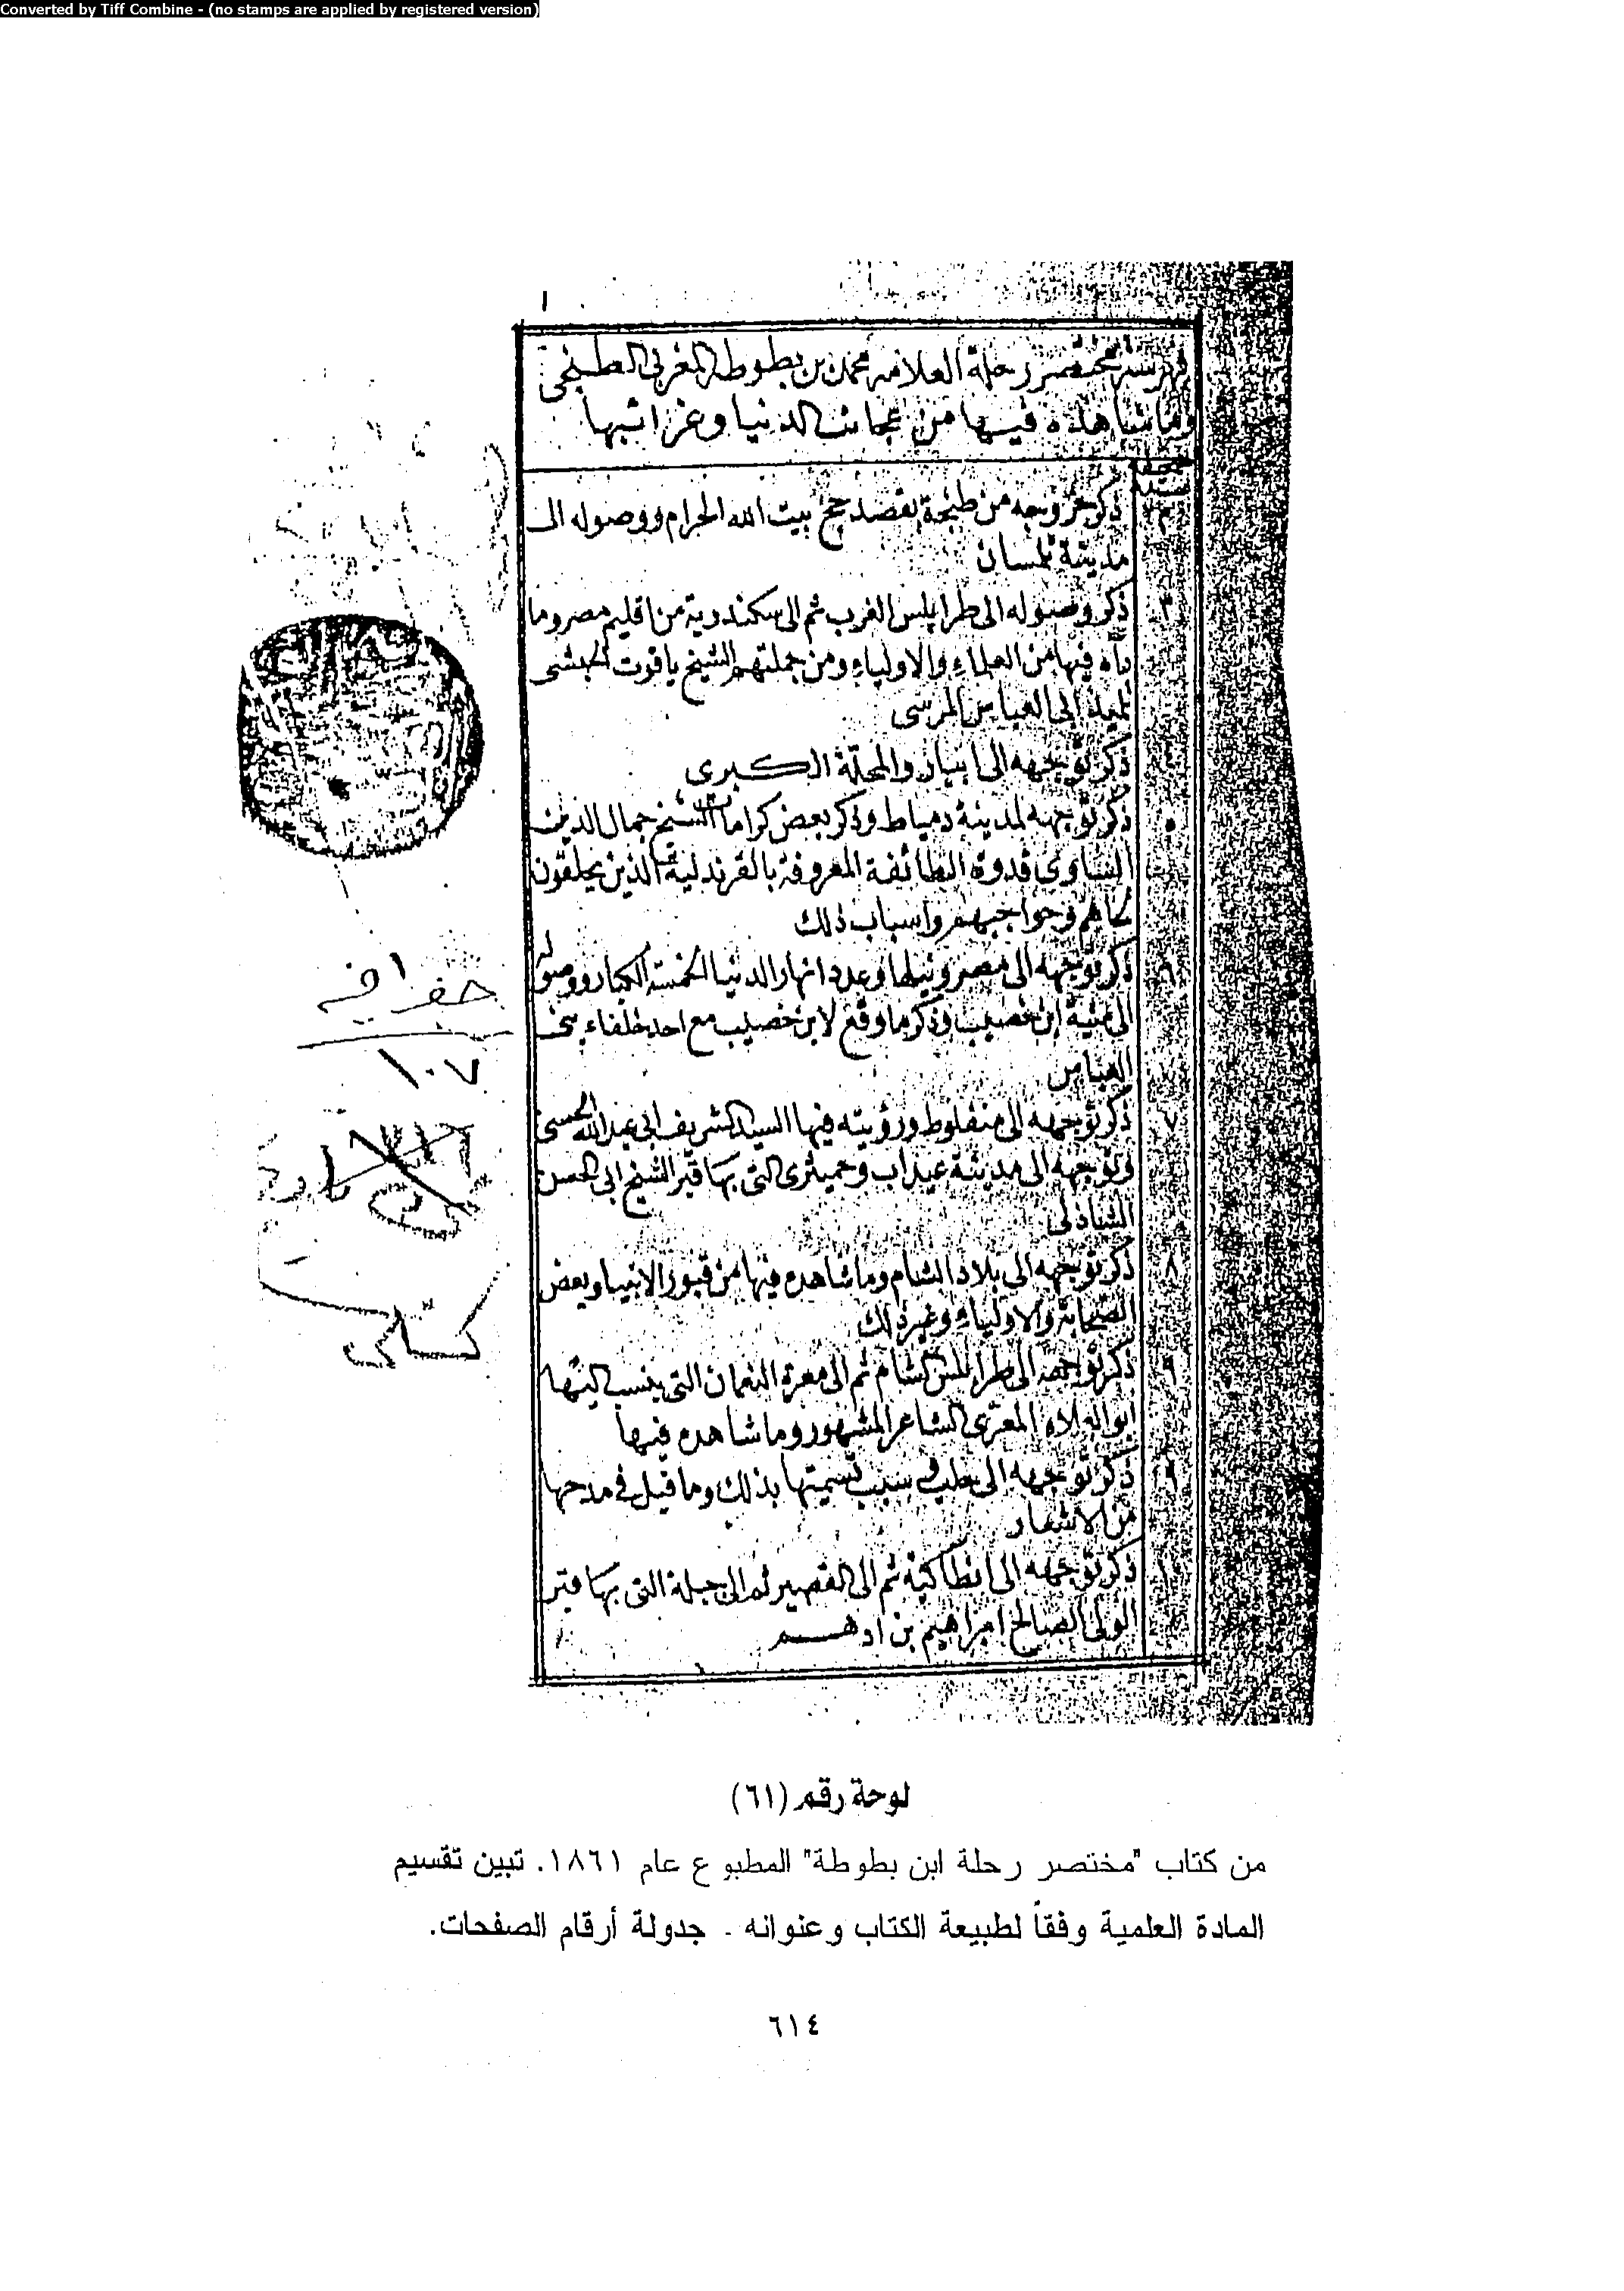 Converted by Tiff Combine - (no stamps are applied by registered version)
١
فهرسة مختصر رحلة العلامه محمد بن بطوطة المغربى الطنجى
وما شاهده فيها من عجائب الدنيا وغرائبها
صحيفة
٢ ذكر خروجه من طنجة بقصد حج بيت الله الحرام ووصوله الى
مدينة تلمسان
٣ ذكر وصوله الى طرابلس الغرب ثم الى سكندرية من اقليم مصر وما
رآه فيها من العلماء والاولياء ومن جملتهم الشيخ ياقوت الحبشى
تلميذ ابى العباس المرسى
ذكر توجهه الى ابيار والمحلة الكبرى
٥ ذكر توجهه لمدينة دمياط وذكر بعض كرامات الشيخ جمال الدين
الساوى قدوة الطائفة المعروفة بالقرندلية الذين يحلقون
لحاهم وحواجبهم واسباب ذلك
٦ ذكر توجهه الى مصر ونيلها وعدد انهار الدنيا الخمسة الكبار ووصوله
الى منية ابن خصيب وذكر ما وقع لابن خصيب مع احد خلفاء بنى
العباس
٧ ذكر توجهه الى منفلوط ورؤيته فيها السيد الشريف ابى عبد الله الحسنى
وتوجهه الى مدينة عيذاب وحميثرى التى بها قبر الشيخ ابى الحسن
الشاذلى
٨ ذكر توجهه الى بلاد الشام وما شاهده فيها من قبور الانبيا وبعض
الصحابة والاولياء وغير ذلك
٩ ذكر توجهه الى طرابلس الشام ثم الى معرة النعمان التى ينسب اليها
ابو العلاء المعرى الشاعر المشهور وما شاهده فيها
٩ ذكر توجهه الى حلب وسبب تسميتها بذلك وما قيل فى مدحها
من الاشعار
ذكر توجهه الى انطاكية ثم الى القصير ثم الى جبلة التى بها قبر
الولى الصالح ابراهيم بن ادهم
جغرافيه
١٠٧
لوحة رقم (٦١)
من كتاب "مختصر رحلة ابن بطوطة" المطبوع عام ١٨٦١. تبين تقسيم
المادة العلمية وفقاً لطبيعة الكتاب وعنوانه - جدولة أرقام الصفحات.
٦١٤